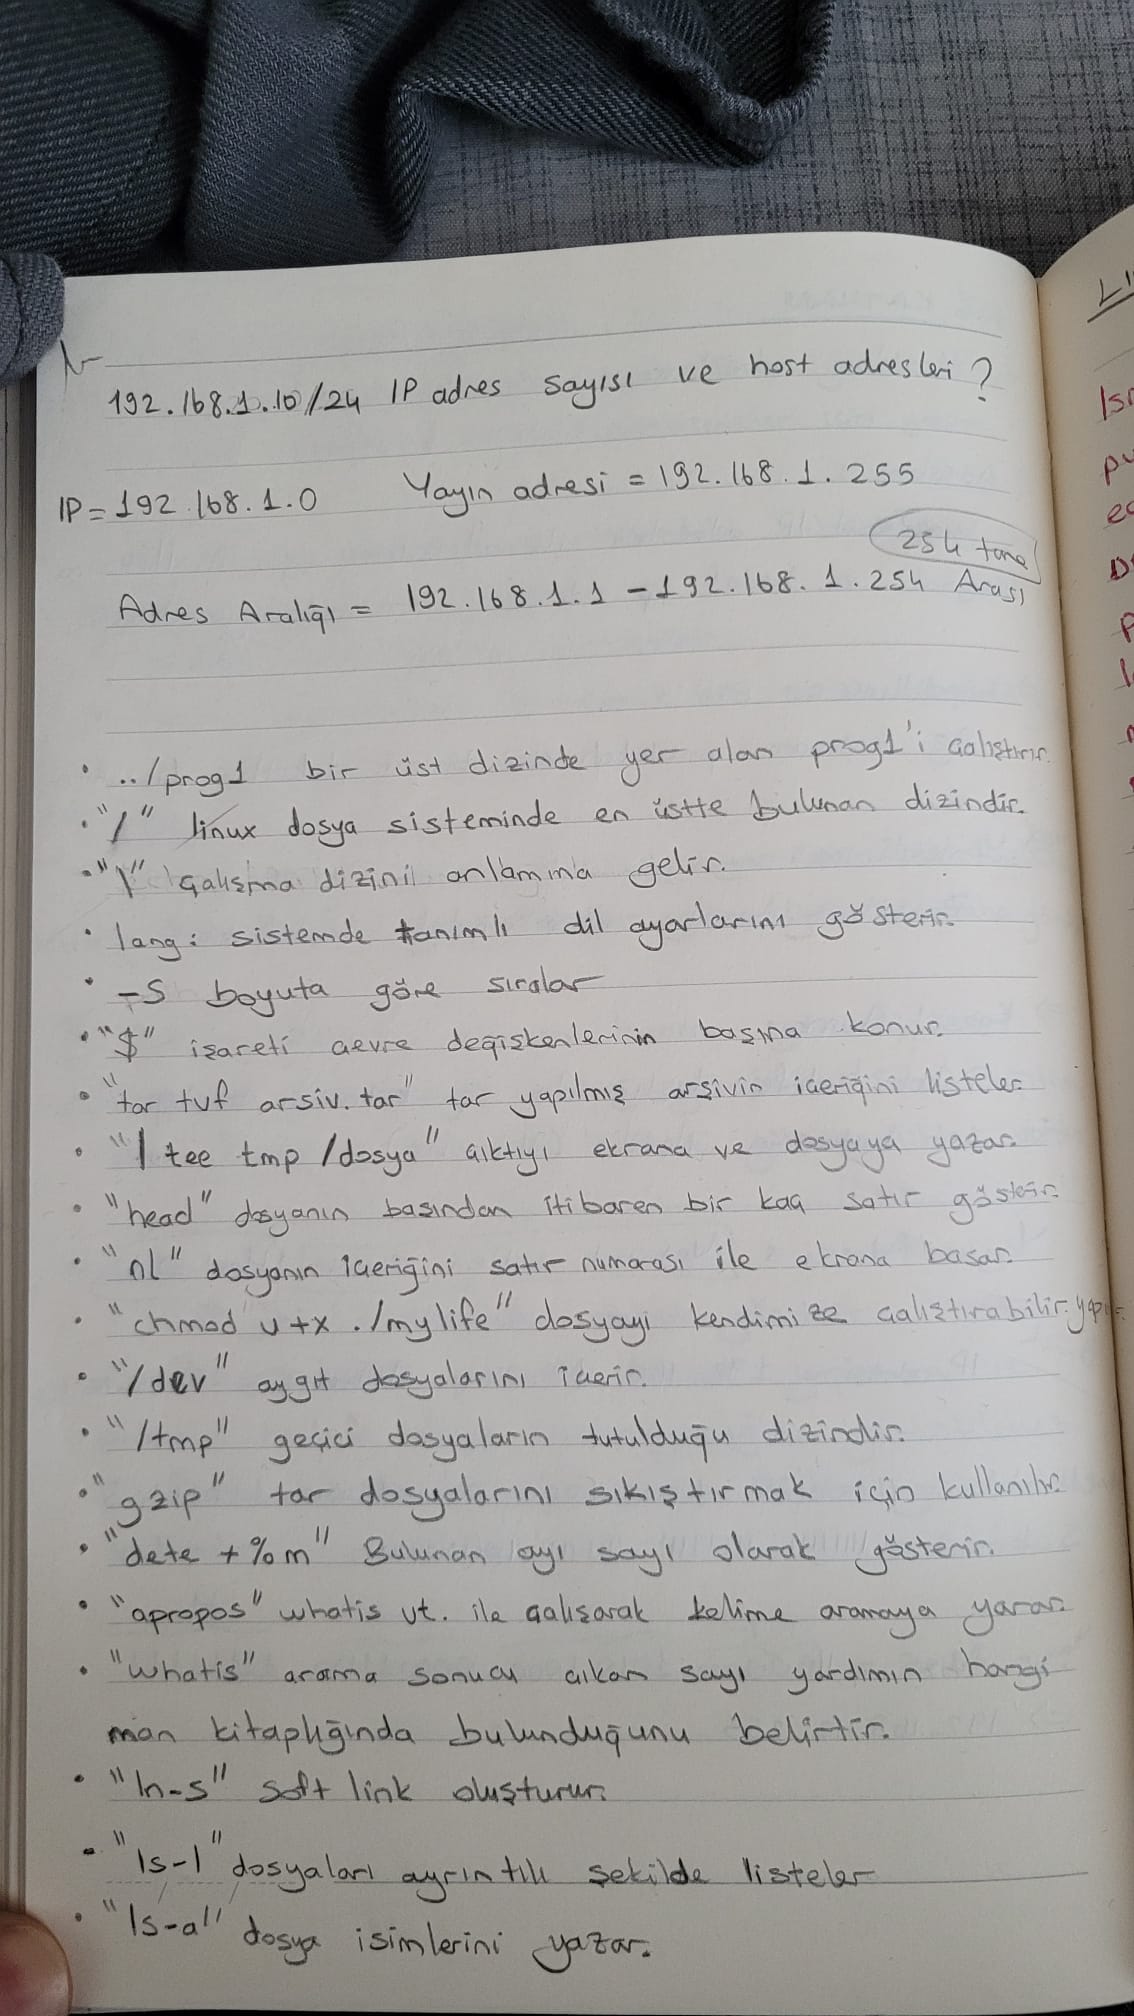 192.168.1.10/24 IP adres sayısı ve host adresleri?
IP = 192.168.1.0 Yayın adresi = 192.168.1.255
254 tane
Adres Aralığı = 192.168.1.1 - 192.168.1.254 Arası
• ../prog1 bir üst dizinde yer alan prog1'i çalıştırır.
• "/" linux dosya sisteminde en üstte bulunan dizindir.
• "\" çalışma dizini anlamına gelir.
• lang: sistemde tanımlı dil ayarlarını gösterir.
• -S boyuta göre sıralar
• "$" işareti çevre değişkenlerinin başına konur.
• "tar tvf arsiv.tar" tar yapılmış arşivin içeriğini listeler
• "| tee tmp /dosya" çıktıyı ekrana ve dosyaya yazar.
• "head" dosyanın basından itibaren bir kaç satır gösterir.
• "nl" dosyanın içeriğini satır numarası ile ekrana basar.
• "chmod u+x ./mylife" dosyayı kendimize çalıştırabilir yapar.
• "/dev" aygıt dosyalarını içerir.
• "/tmp" geçici dosyaların tutulduğu dizindir.
• "gzip" tar dosyalarını sıkıştırmak için kullanılır.
• "dete +%m" Bulunan ayı sayı olarak gösterir.
• "apropos" whatis vt. ile çalışarak kelime aramaya yarar.
• "whatis" arama sonucu çıkan sayı yardımın hangi
man kitaplığında bulunduğunu belirtir.
• "ln-s" soft link oluşturur.
• "ls-l" dosyaları ayrıntılı şekilde listeler
• "ls-a" dosya isimlerini yazar.